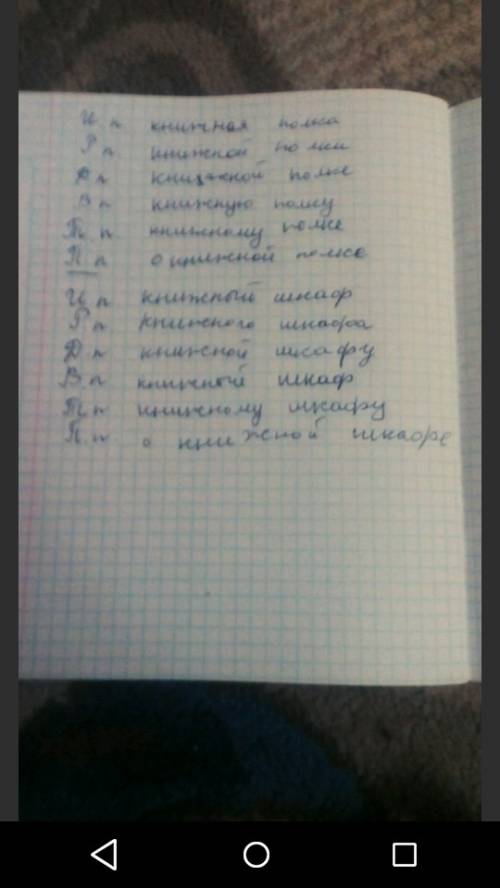 И. п книжная полка
Р п. книжной полки
Д п книжной полке
В п книжную полку
Т. п. книжному полке
П. п о книжной полке
И. п книжный шкаф
Р. п книжного шкафа
Д. п книжной шкафу
В. п книжный шкаф
Т. п книжному шкафу
П. п о книжной шкафе